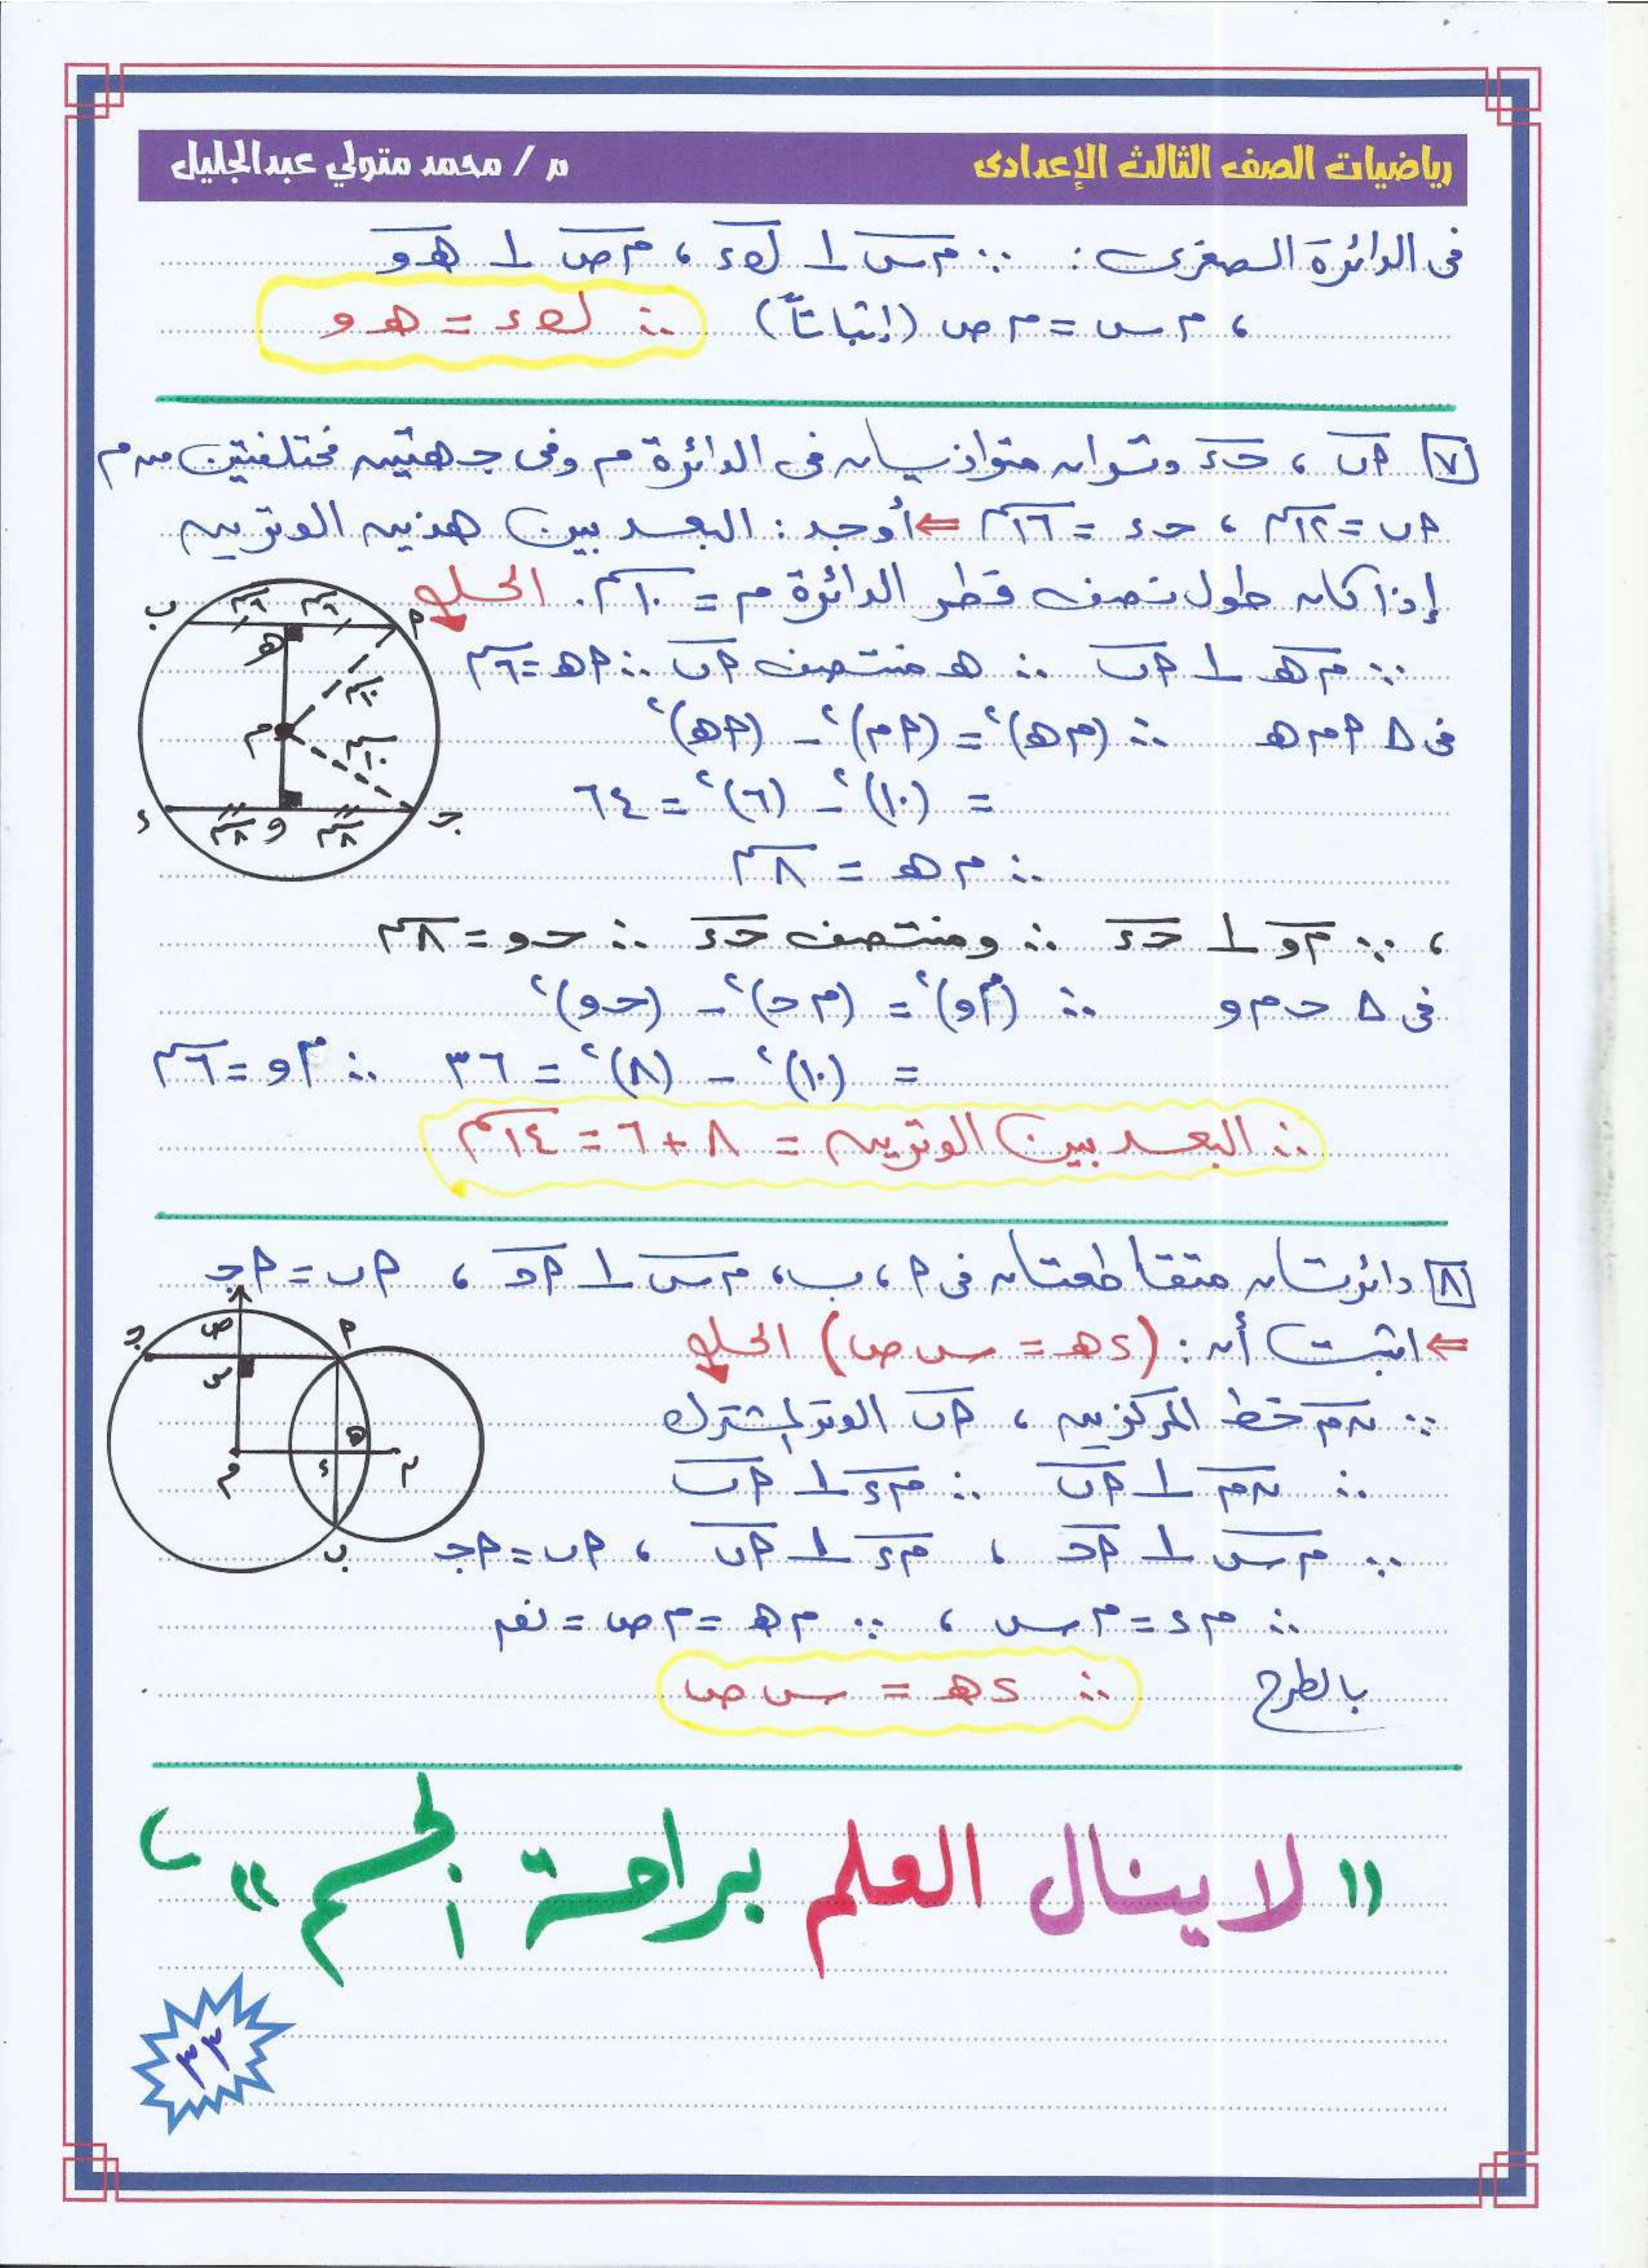 رياضيات الصف الثالث الإعدادى
م / محمد متولي عبدالجليل
فى الدائرة الصغرى : ∵ م س ⊥ ل ء ، م ص ⊥ هـ و
، م س = م ص (إثباتاً) ∴ ل ء = هـ و
٧ أب ، حـ ء وتران متوازيان فى الدائرة م وفى جهتين مختلفتين من م
أب = ١٢سم ، حـ ء = ١٦سم ⇐ أوجد : البعد بين هذين الوترين
إذا كان طول نصف قطر الدائرة م = ١٠سم . الحل
∵ م هـ ⊥ أب ∴ هـ منتصف أب ∴ أهـ = ٦سم
فى Δ أ م هـ ∴ (م هـ)² = (أ م)² - (أ هـ)²
= (١٠)² - (٦)² = ٦٤
∴ م هـ = ٨سم
، ∵ م و ⊥ حـ ء ∴ و منتصف حـ ء ∴ حـ و = ٨سم
فى Δ حـ م و ∴ (م و)² = (م حـ)² - (حـ و)²
= (١٠)² - (٨)² = ٣٦ ∴ م و = ٦سم
∴ البعد بين الوترين = ٨ + ٦ = ١٤سم
ب ٦سم ٦سم أ
هـ
١٠سم
م ١٠سم
ء ٨سم و ٨سم جـ
٨ دائرتان متقاطعتان فى أ ، ب ، م س ⊥ أ حـ ، أب = أجـ
⇐ اثبت أن : (ء هـ = س ص) الحل
∵ ن م خط المركزين ، أب الوتر المشترك
∴ ن م ⊥ أب ∴ م ء ⊥ أب
∵ م س ⊥ أ حـ ، م ء ⊥ أب ، أب = أجـ
∴ م ء = م س ، ∵ م هـ = م ص = نق
بالطرح ∴ ء هـ = س ص
جـ ص أ
س
هـ
م ء ن
ب
"لا ينال العلم براحة الجسم"
٣٣